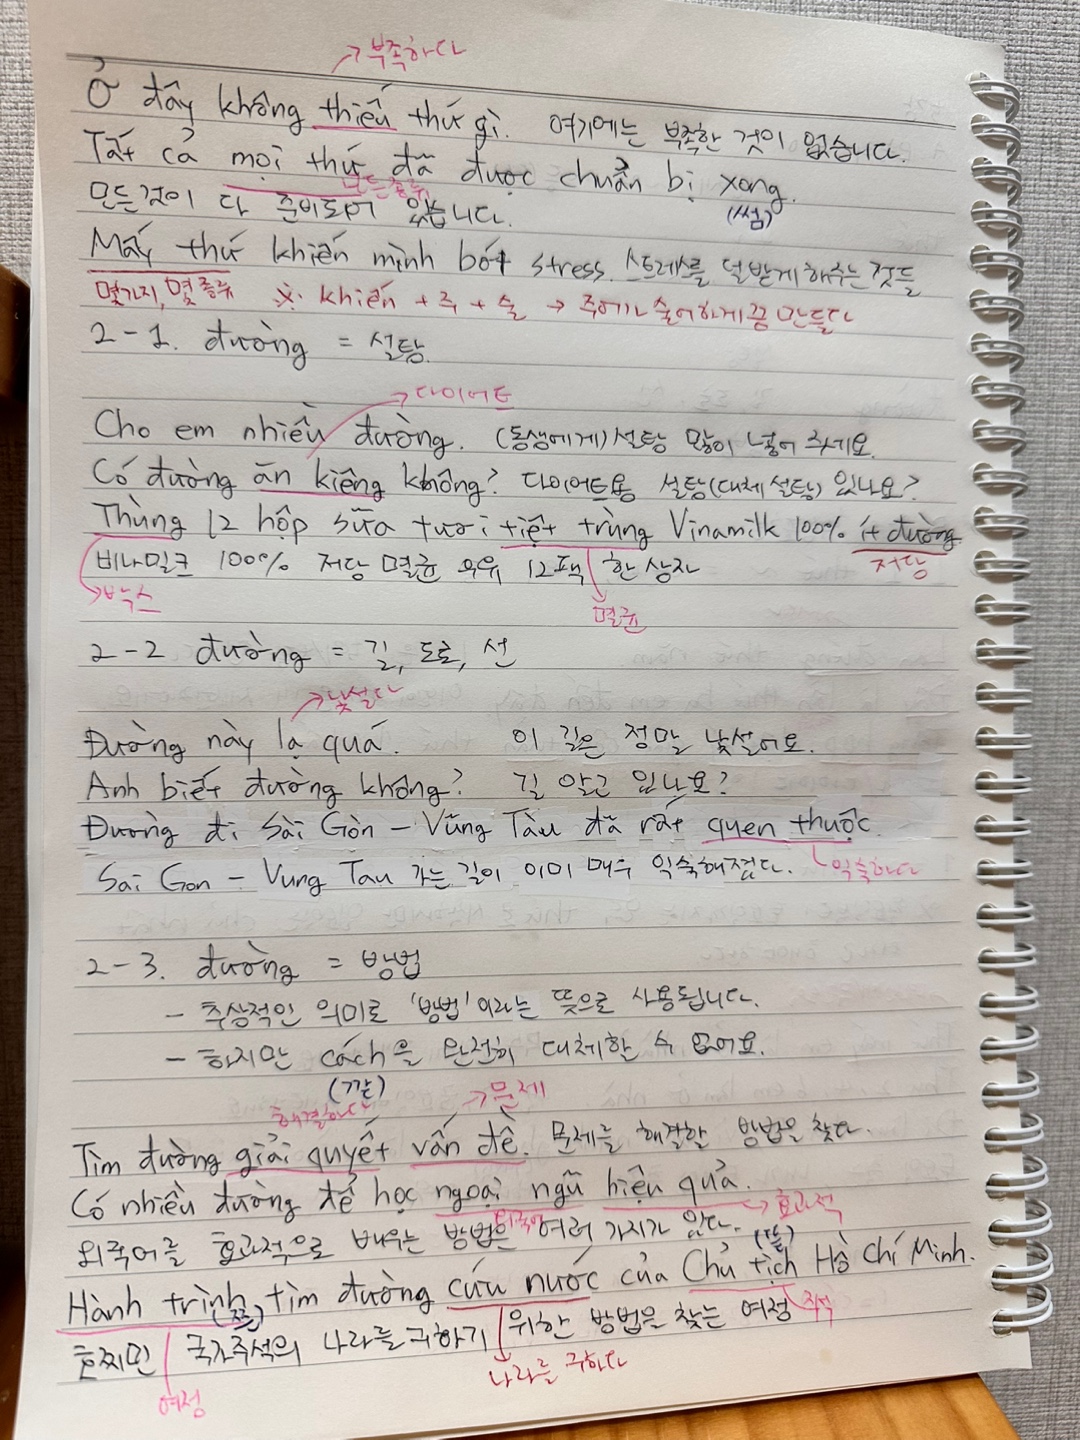 → 부족하다
Ở đây không thiếu thứ gì. 여기에는 부족한 것이 없습니다.
Tất cả mọi thứ đã được chuẩn bị xong.
모든종류
(썸)
모든것이 다 준비되어 있습니다.
Mấy thứ khiến mình bớt stress. 스트레스를 덜받게 해주는 것들
몇가지, 몇 종류 ※. khiến + 주 + 술 → 주어가 술어하게끔 만들다
2-1. đường = 설탕.
→ 다이어트
Cho em nhiều đường. (동생에게) 설탕 많이 넣어 주세요.
Có đường ăn kiêng không? 다이어트용 설탕(대체 설탕) 있나요?
Thùng 12 hộp sữa tươi tiệt trùng Vinamilk 100% ít đường
비나밀크 100% 저당 멸균 우유 12팩 한 상자 저당
→ 박스
멸균
2-2 đường = 길, 도로, 선
→ 낯설다
Đường này lạ quá. 이 길은 정말 낯설어요.
Anh biết đường không? 길 알고 있나요?
Đương đi Sài Gòn - Vũng Tàu đã rất quen thuộc.
Sai Gon - Vung Tau 가는 길이 이미 매우 익숙해졌다. 익숙하다
2-3. đường = 방법
- 추상적인 의미로 '방법'이라는 뜻으로 사용됩니다.
- 하지만 cách을 완전히 대체할 수 없어요.
(까)
해결하다 → 문제
Tìm đường giải quyết vấn đề. 문제를 해결할 방법을 찾다.
Có nhiều đường để học ngoại ngữ hiệu quả.
외국어 → 효과적
외국어를 효과적으로 배우는 방법은 여러 가지가 있다.
Hành trình tìm đường cứu nước của Chủ tịch Hồ Chí Minh.
주석
호찌민 국가주석의 나라를 구하기 위한 방법을 찾는 여정
나라를 구하다
여정